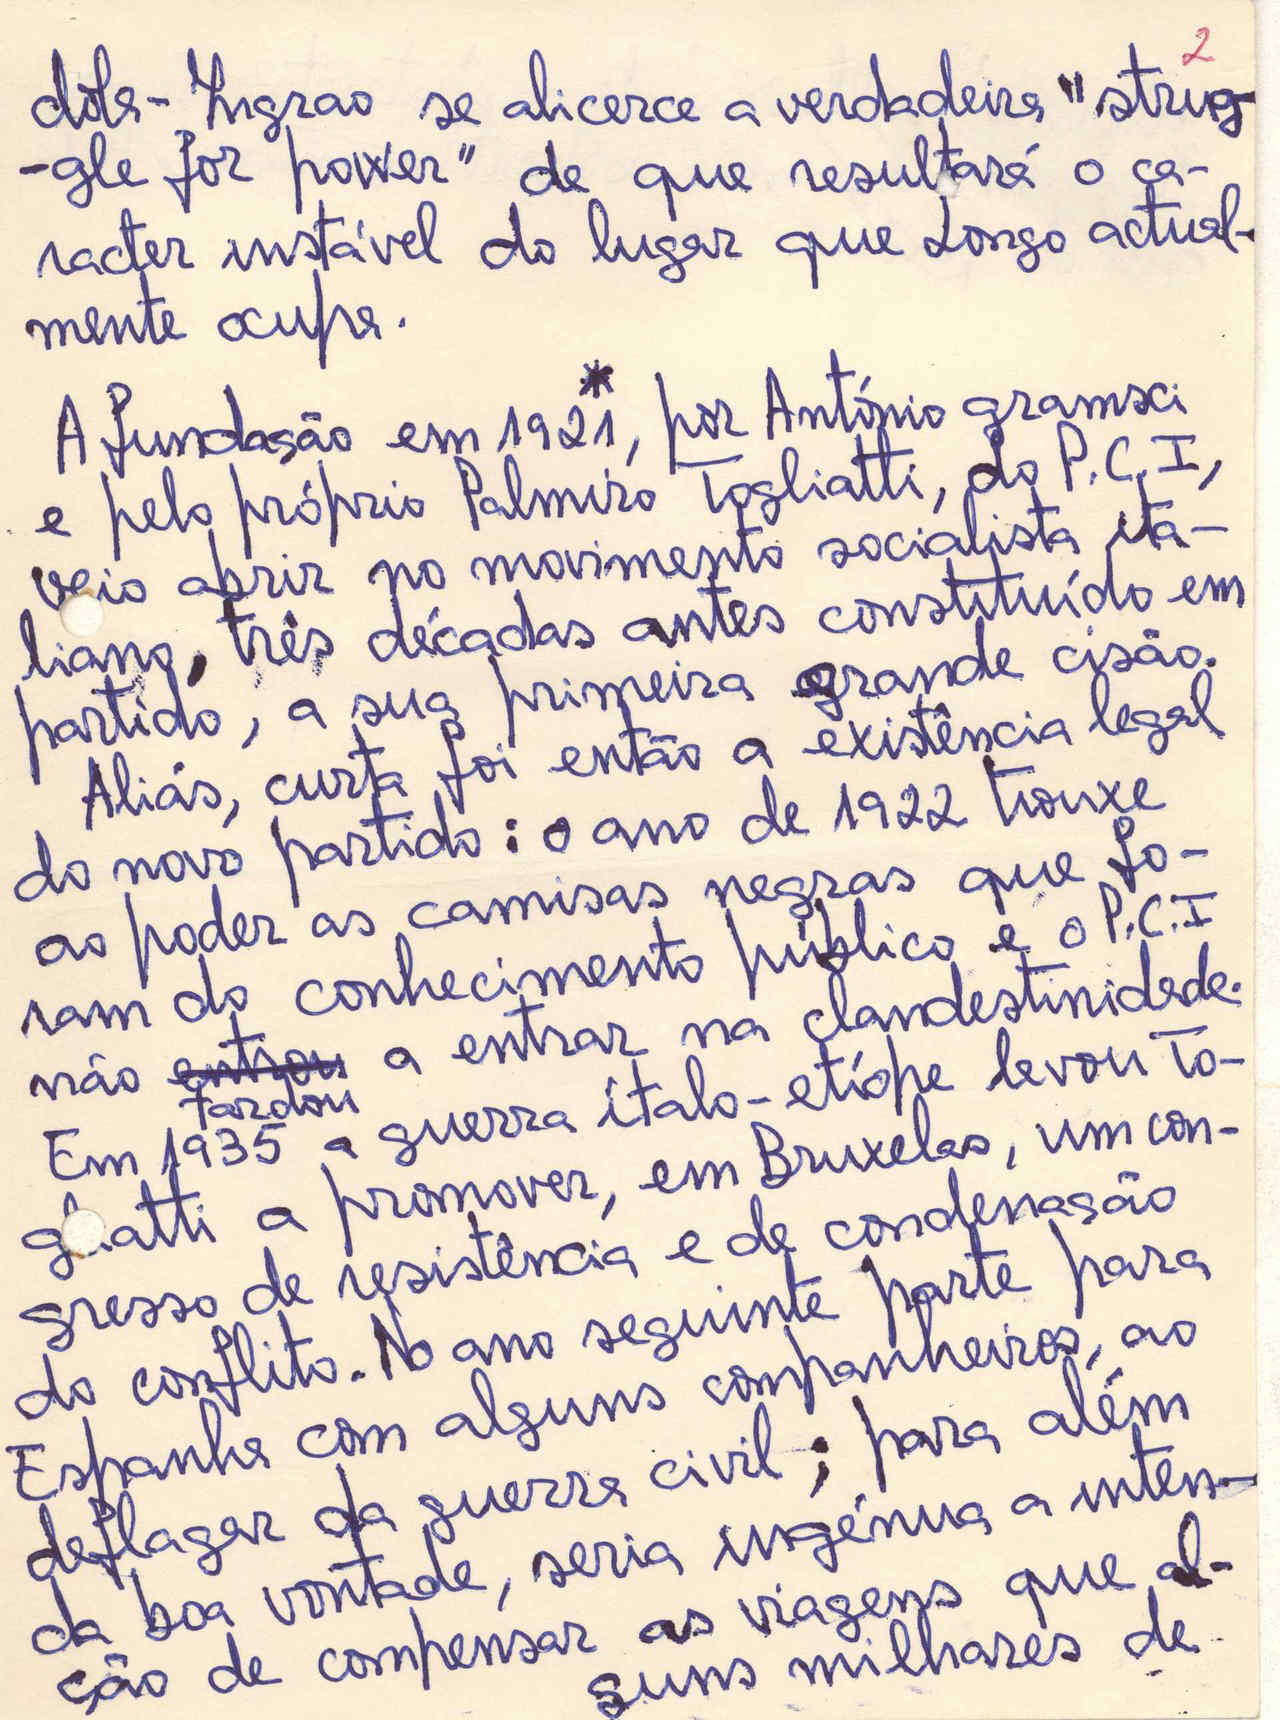 2
dola-Ingrao se alicerce a verdadeira "strug-
-gle for power" de que resultará o ca-
racter instável do lugar que Longo actual-
mente ocupa.
A fundação em 1921*, por António gramsci
e pelo próprio Palmiro Togliatti, do P.C.I,
veio abrir no movimento socialista ita-
liano, três décadas antes constituído em
partido, a sua primeira grande cisão.
Aliás, curta foi então a existência legal
do novo partido: o ano de 1922 trouxe
ao poder as camisas negras que fo-
ram do conhecimento público e o P.C.I
não entrou a entrar na clandestinidade.
tardou
Em 1935 a guerra ítalo-etíope levou To-
gliatti a promover, em Bruxelas, um con-
gresso de resistência e de condenação
do conflito. No ano seguinte parte para
Espanha com alguns companheiros, ao
deflagar da guerra civil; para além
da boa vontade, seria ingénua a inten-
ção de compensar as viagens que al-
guns milhares de